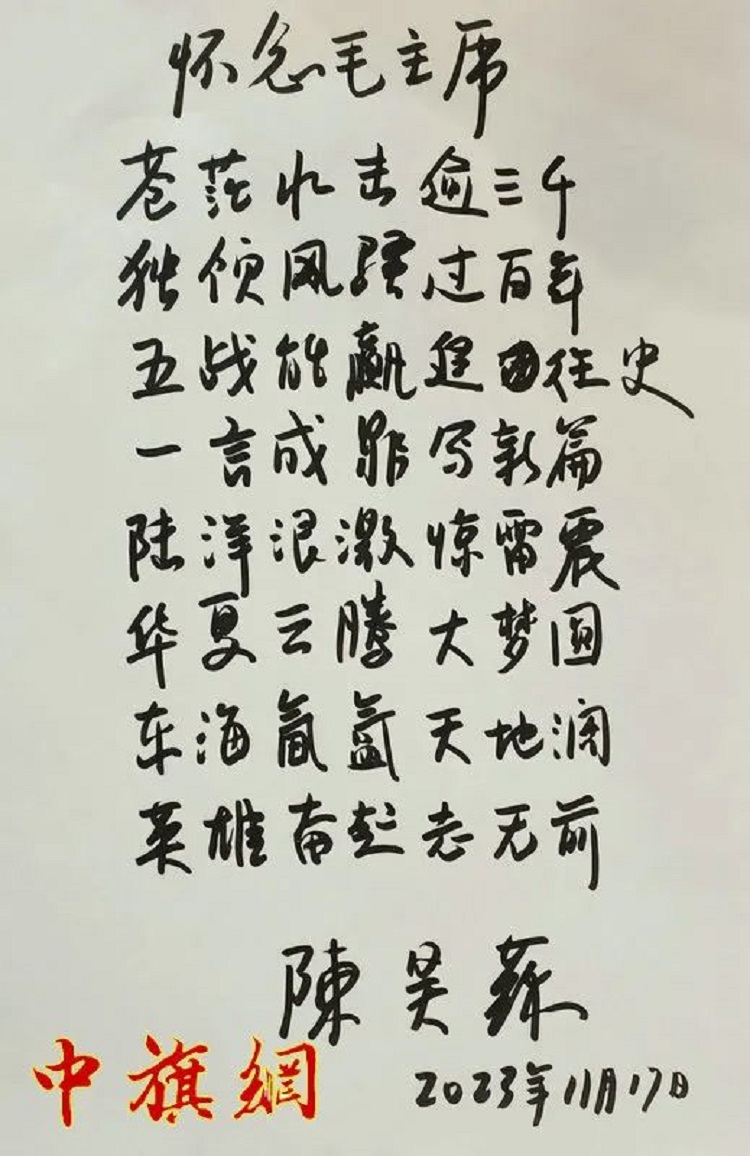 怀念毛主席
苍茫水击逾三千
独领风骚过百年
五战能赢追往史
一言成鼎写新篇
陆洋浪激惊雷震
华夏云腾大梦圆
东海氤氲天地阔
英雄奋起志无前
陳昊蘇
2023年11月17日
中旗網